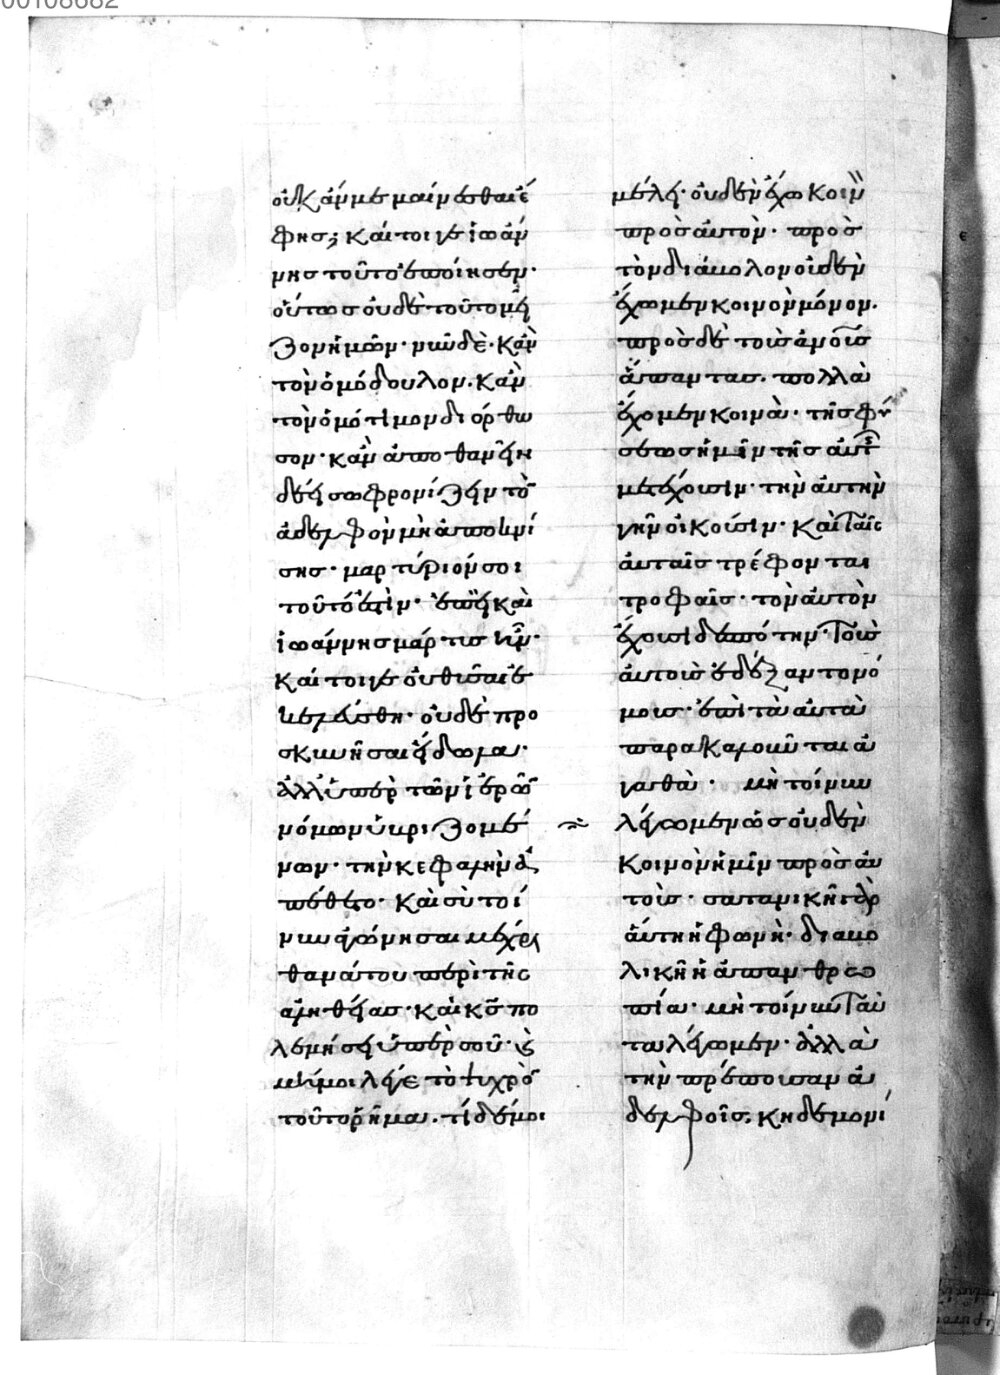 00108682
οὐκ ἄν με μαίνεσθαι ἔ
φησ; καί τοι γε ἰωάν
νησ τοῦτο ἐποίησεν·
οὕτωσ οὐδὲ τοῦτο μεῖ
ζον ἡμῶν· νῦν δὲ· κἂν
τὸν ὁμόδουλον. κἂν
τὸν ὁμότιμον διόρθω
σον· κἂν ἀποθανεῖν
δέῃ σωφρονίζειν τὸν
ἀδελφὸν μὴ ἀποκνή
σησ· μαρτύριόν σοι
τοῦτό ἐστὶν· ἐπεὶ καὶ
ἰωάννησ μάρτυσ ἦν·
καί τοι γε οὐ θῦσαι ἐ
κελεύσθη· οὐδὲ προ
σκυνῆσαι εἴδωλα·
ἀλλ' ὑπὲρ τῶν ἱερῶν
νόμων ὑβριζομέ
νων· τὴν κεφαλὴν ἀ
πέθετο· καὶ σὺ τοί
νυν ἀγώνησαι μέχρι
θανάτου περὶ τῆς
ἀληθείασ· καὶ κσ πο
λεμήσει ὑπὲρ σοῦ· καὶ
μή μοι λέγε τὸ ψυχρὸν
τοῦτο ῥῆμα. τί δέ μοι
μέλει· οὐδὲν ἔχω κοινὸν
πρὸσ αὐτὸν· πρὸσ
τὸν διάβολον οὐδὲν
ἔχωμεν κοινὸν μόνον.
πρὸσ δὲ τοὺσ ἀνουσ
ἅπαντασ. πολλὰ
ἔχομεν κοινὰ· τῆσ φύ
σεωσ ἡμῖν τῆσ αὐτῆσ
μετέχουσιν· τὴν αὐτὴν
γῆν οἰκοῦσιν· καὶ ταῖς
αὐταῖσ τρέφονται
τροφαῖσ· τὸν αὐτὸν
ἔχουσι δεσπότην· τοὺσ
αὐτοὺσ ἐδέξαντο νό
μουσ· ἐπὶ τὰ αὐτὰ
παρακαλοῦνται ἀ
γαθὰ· μὴ τοίνυν
λέγωμεν ὡσ οὐδὲν
κοινὸν ἡμῖν πρὸσ αὐ
τοὺσ· σατανικὴ γὰρ
αὕτη ἡ φωνὴ· διαβο
λικὴ ἡ ἀπανθρω
πία· μὴ τοίνυν ταῦ
τα λέγωμεν· ἀλλὰ
τὴν πρέπουσαν ἀ
δελφοῖσ, κηδεμονί